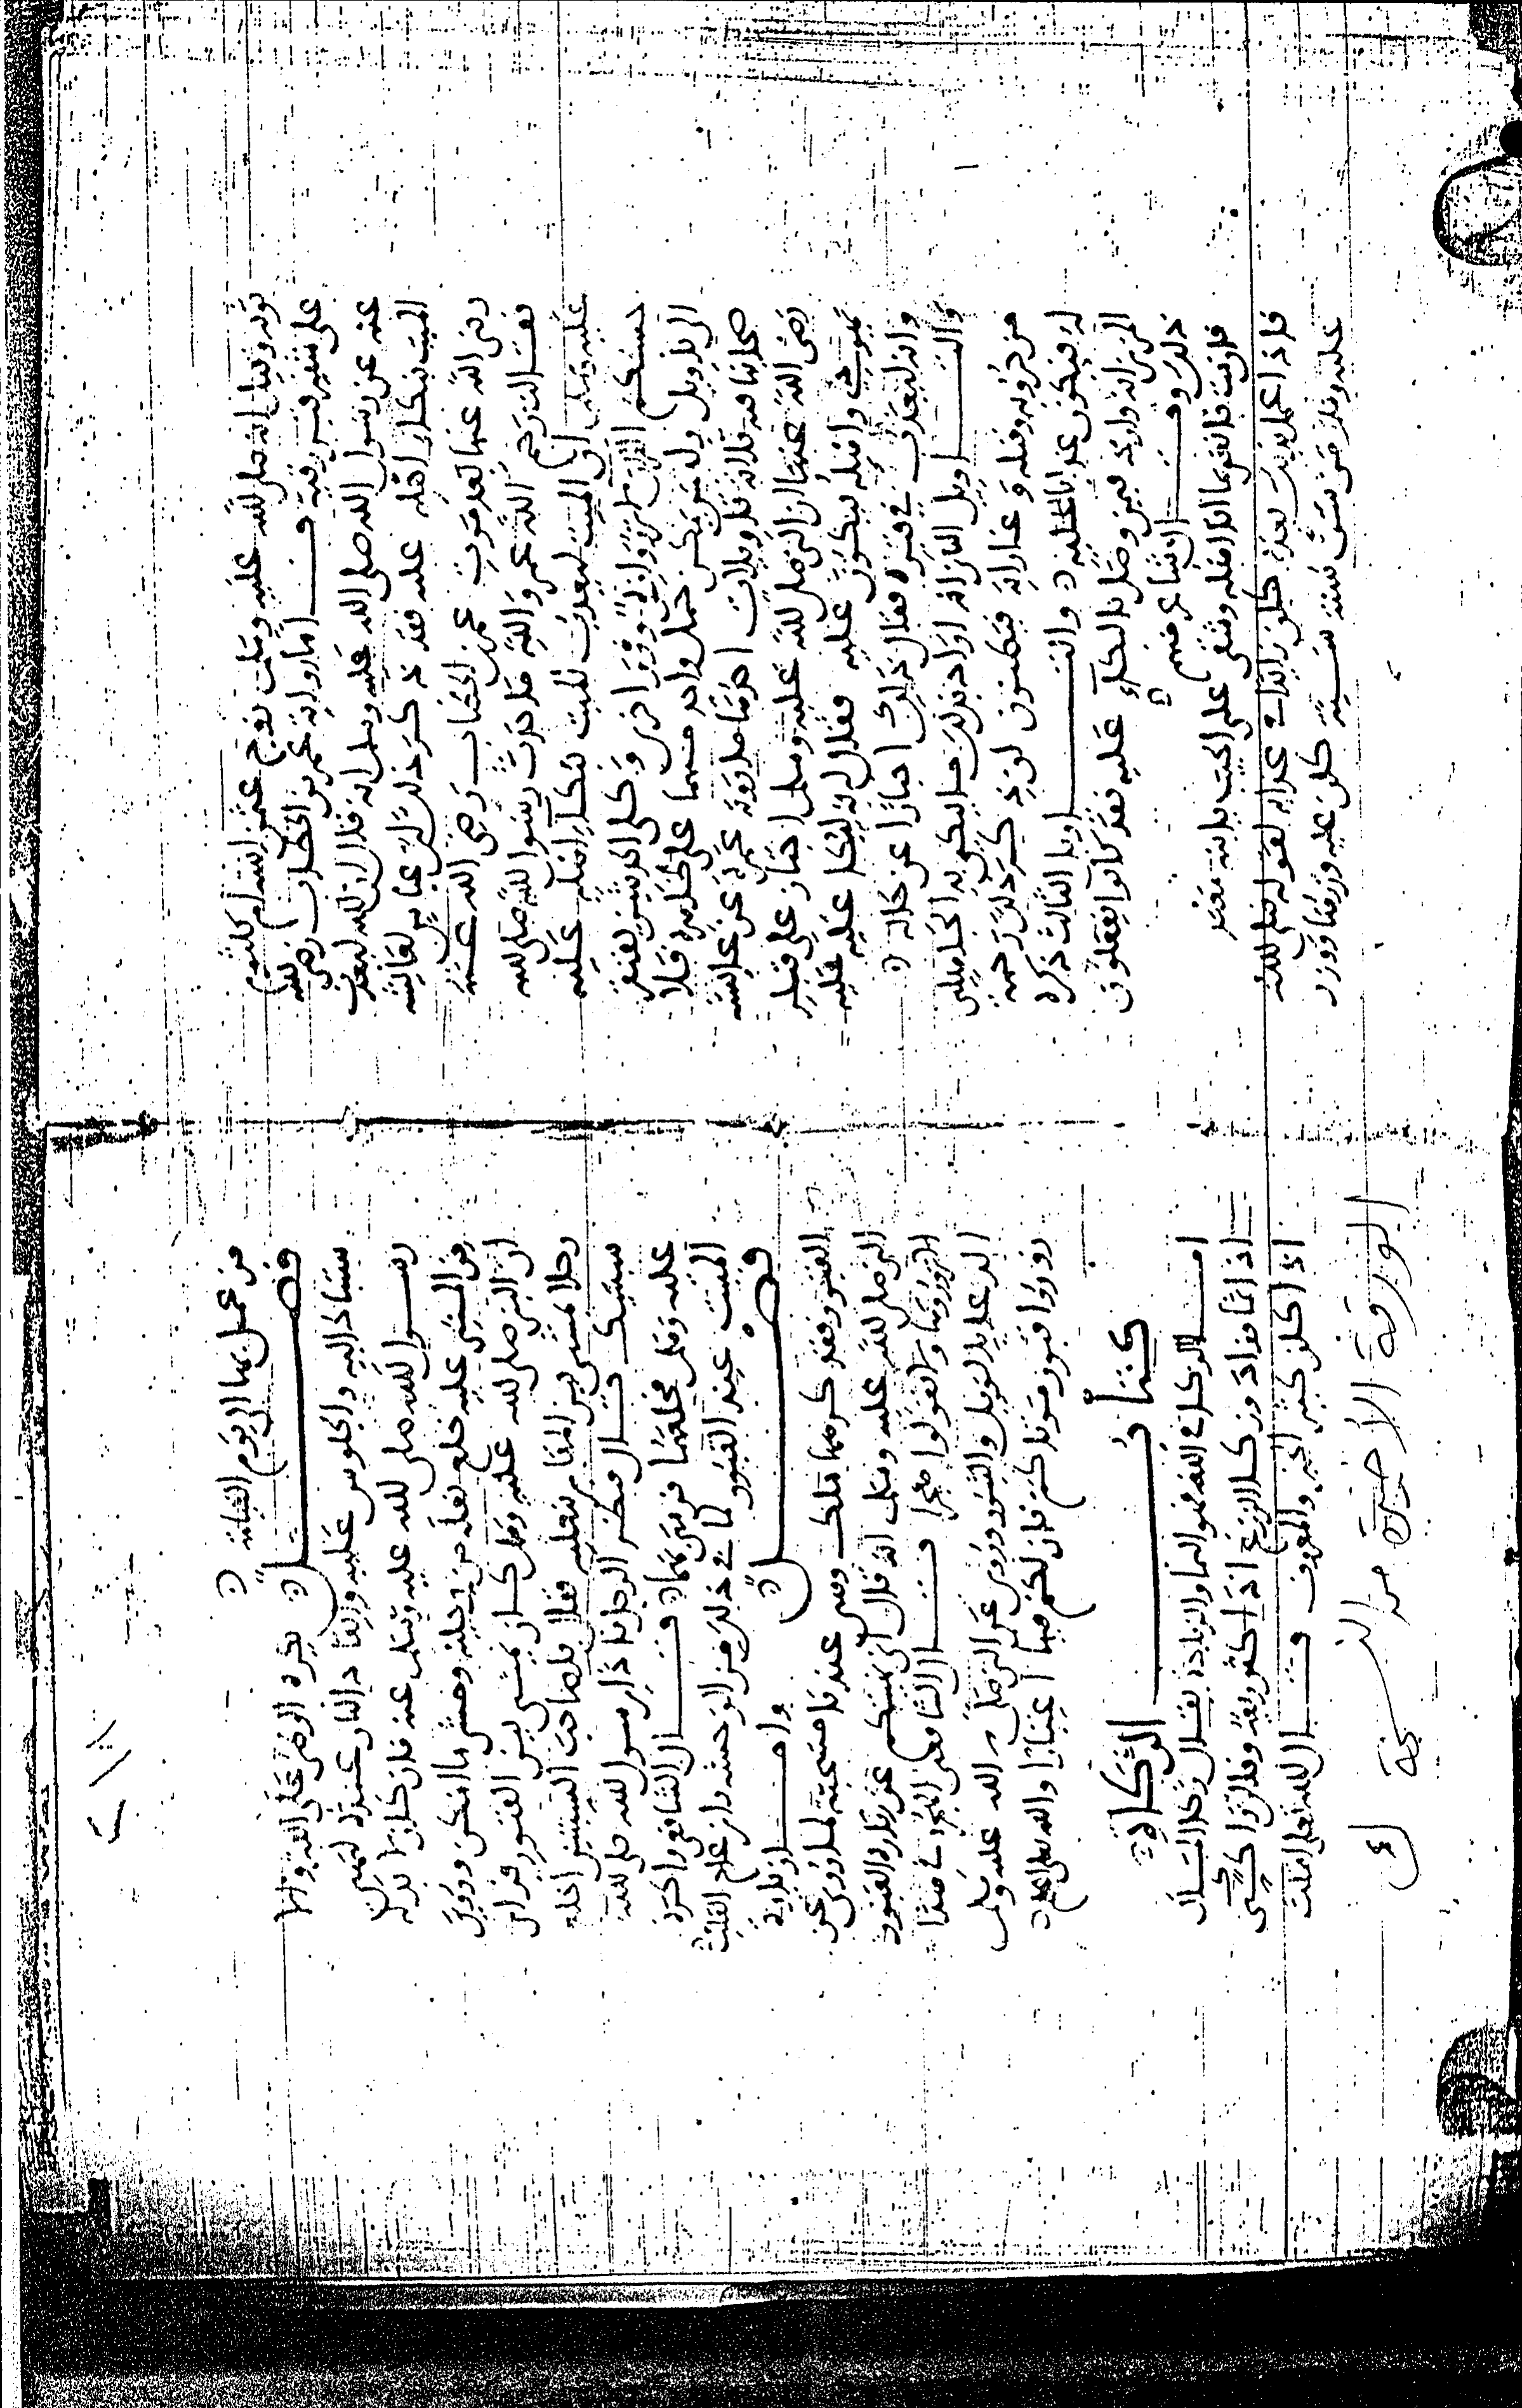 وقيل انه صلى الله عليه وسلم تزوج عثمن ابنته ام كلثوم
على شفير قبر رقية فاما رواية عمر بن الخطاب رضى الله
عنه عن رسول الله صلى الله عليه وسلم انه قال ان الله ليعذب
الميت ببكاء اهله عليه فقد ذكر ذلك ابن عباس لعائشة
رضى الله عنها بعد موت عمر بن الخطاب رضى الله عنه
فقالت رحم الله عمر والله ما حدث رسول الله صلى الله
عليه وسلم ان الميت ليعذب ببكاء اهله عليه
حسبكم القران لا تزر وازرة وزر اخرى وكلى الحديثين يفتقر
الى تاويل وليس يمكن حمل واحد منهما على ظاهره فلا
صحابنا فيه ثلاثة تاويلات احدها ما روته عمرة عن عائشة
رضى الله عنها ان النبي صلى الله عليه وسلم اجتاز على قبر
يهودي واهله يبكون عليه فقال انه ليبكا عليه
وانه ليعذب في قبره فقال ذلك اخبارا عن حاله
والتاويل الثاني انه اراد بذلك ما
من وقتله وغاراته فيكون ذكر ذلك
له فيكون عذابا عليه والتاويل الثالث ذكره
المزني انه وارد فيمن وصى بالبكاء عليه فقد كانوا يفعلون
ذلك وقال الشاعر منهم
فان مت فانعيني بما انا اهله وشقي علي الجيب يا ابنة معبد
فاذا عمل بذلك بعده كان زايدا في عذابه لقوله صلى الله
عليه وسلم من سن سنة سيئة كان عليه وزرها ووزر
من عمل بها الى يوم القيامة
فصل يكره الوطى على القبور
والجلوس عليه وايقاد النار عنده
رسول الله صلى الله عليه وسلم عنه فان كان لا بد له
من المشي عليه خلع نعله من رجليه ومشى ما امكن وروي
ان النبي صلى الله عليه وسلم كان يمشي بين القبور فراى
رجلا يمشي بين المقابر بنعليه فقال يا صاحب السبتيتين اخلع
سبتيتك قال فنظر الرجل فاذا رسول الله صلى الله
عليه وسلم فخلعهما فرمى بهما قال الشافعي واكره
المبيت عند القبور لما في ذلك من الوحشة وانزعاج القلب
فصل واما زيارة
القبور فقد كرهها ملك وهي عندنا مستحبة لما روي عن
النبي صلى الله عليه وسلم انه قال اني نهيتكم عن زيارة القبور
الا فزوروها ولا تقولوا هجرا قال الشافعي الهجر هاهنا
الدعا بالويل والثبور وروي عن النبي صلى الله عليه وسلم
زوروا قبور موتاكم فان لكم فيها اعتبارا والله تعالى اعلم
كتاب الزكاة
اما الزكاة في اللغة فهو النما والزيادة يقال زكا المال
اذا نما وزاد وزكا الزرع اذا كثر ريعه وفلان زاكي
اذا كان كثير الخير والمعروف قال الله تعالى اقتلت
الورقة الاخيرة من النسخة